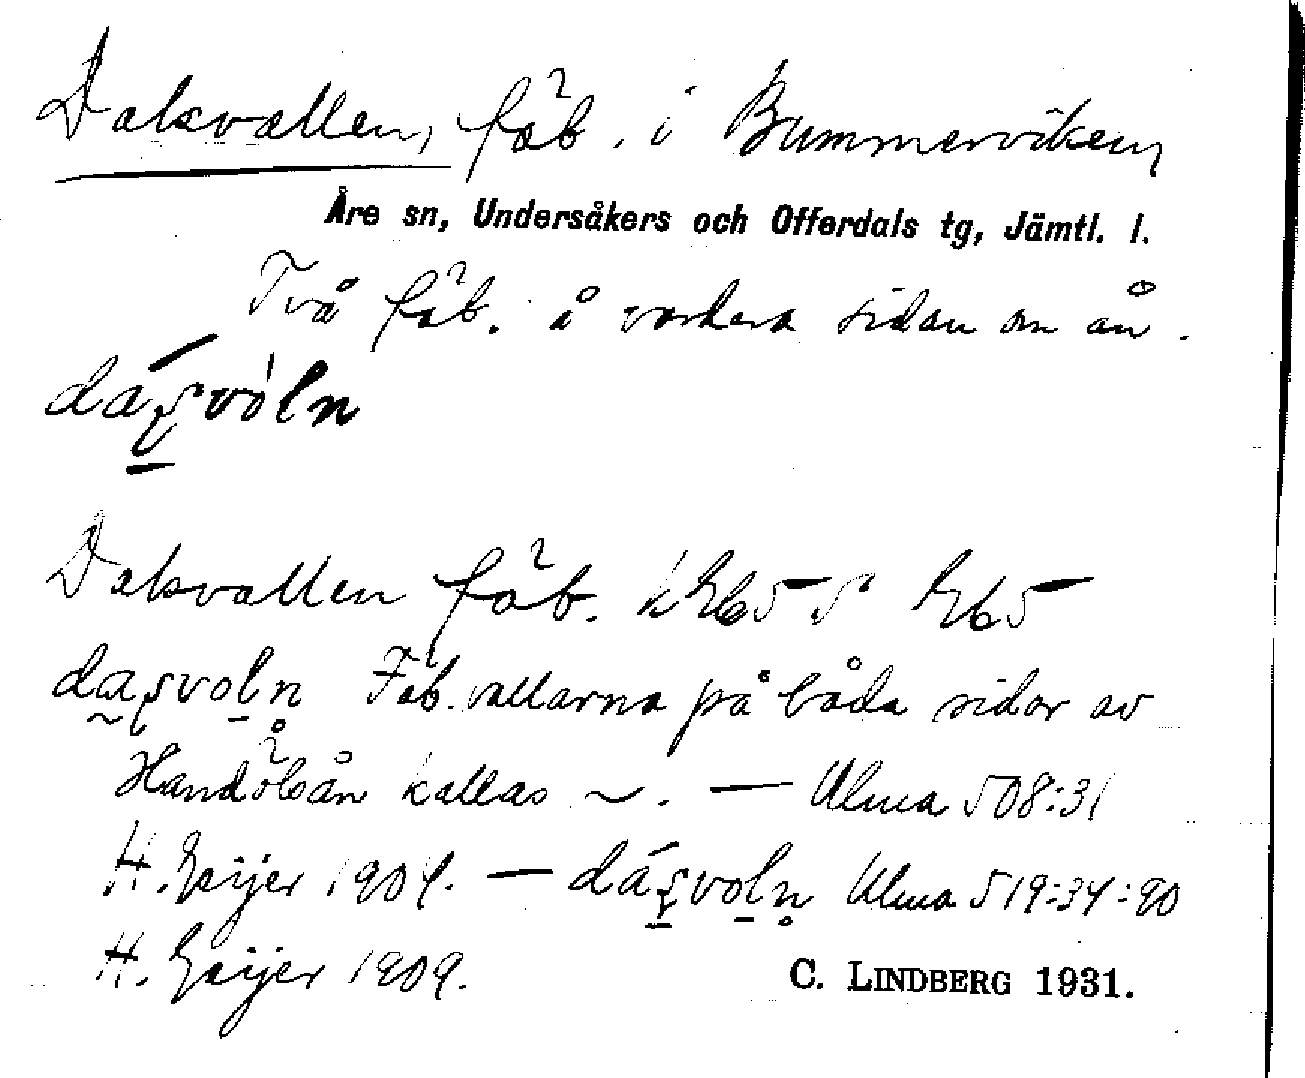 Dalsvallen, fäb. i Bummerviken,
Åre sn, Undersåkers och Offerdals tg, Jämtl. l.
Två fäb. å vardera sidan om ån.
Dalsvallen fäb.
Fäb. vallarna på båda sidor av
Handölsån kallas ~. — Ulma 508:31
H. Geijer 1904. — Ulma 519:34:90
H. Geijer 1909. C. LINDBERG 1931.